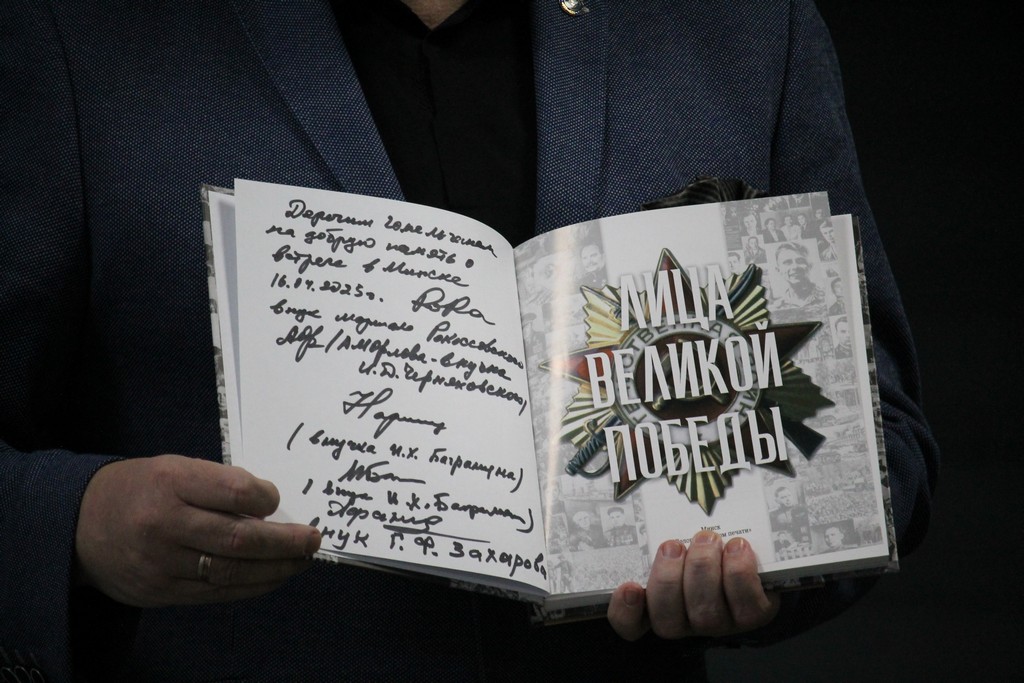 Дорогим гомельчанам
на добрую память о
встрече в Минске
16.04.2025г.
внук маршала Рокоссовского
внучка
И.Д. Черняховского)
(внучка И.Х. Баграмяна)
(внук И.Х. Баграмяна)
внук Г.Ф. Захарова
ЛИЦА
ВЕЛИКОЙ
ПОБЕДЫ
Минск
печати»